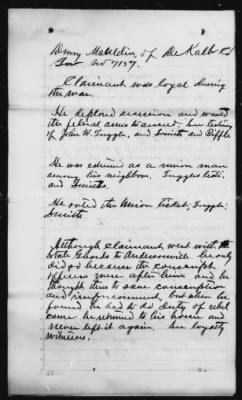 Denny Mauldin, of De Kalb Co
No 7157.
Claimant was loyal during
the war.
He deplored secession and wanted
the federal arms to succeed. See testimony
of John W. Tuggle, and Smith and Piffle
He was esteemed as a union man
among his neighbors. Tuggles testi,
and Smiths.
He voted the Union ticket; Tuggle;
Smith
Although Claimant went with the
State Guards to Andersonville he only
did so because the conscript
officers were after him and he
thought thus to save conscription
and imprisonment, but when he
found he had to do duty at rebel
camp he returned to his home and
never left it again. See loyalty
witnesses.